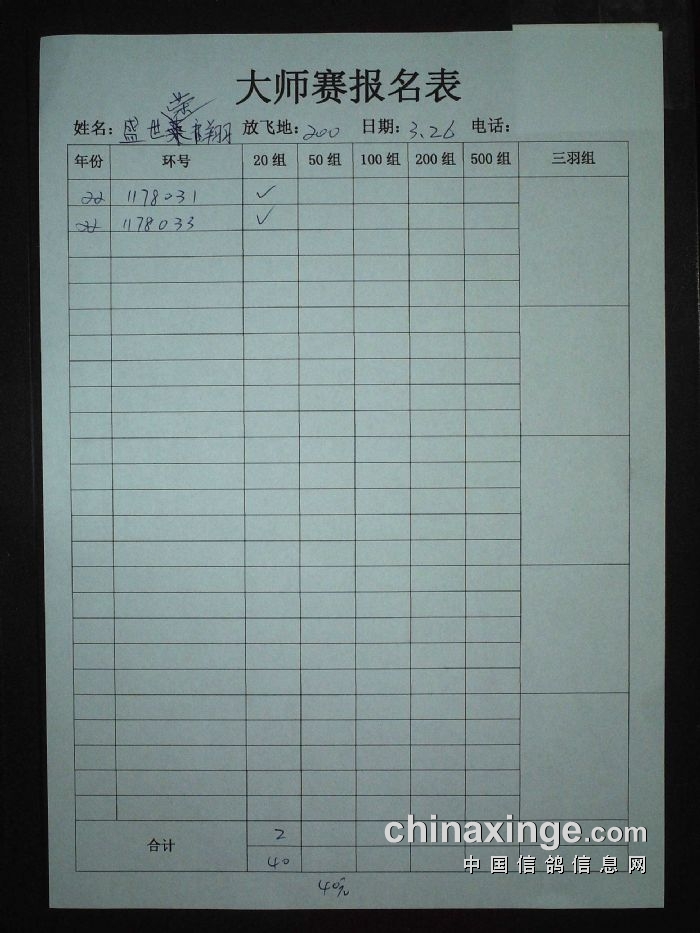 大师赛报名表
荣
姓名：盛世 翔 放飞地：200 日期：3.26 电话：
年份 环号 20组 50组 100组 200组 500组 三羽组
22 1178031 ✓
22 1178033 ✓
合计 2
40
40元
chinaxinge.com
中国信鸽信息网